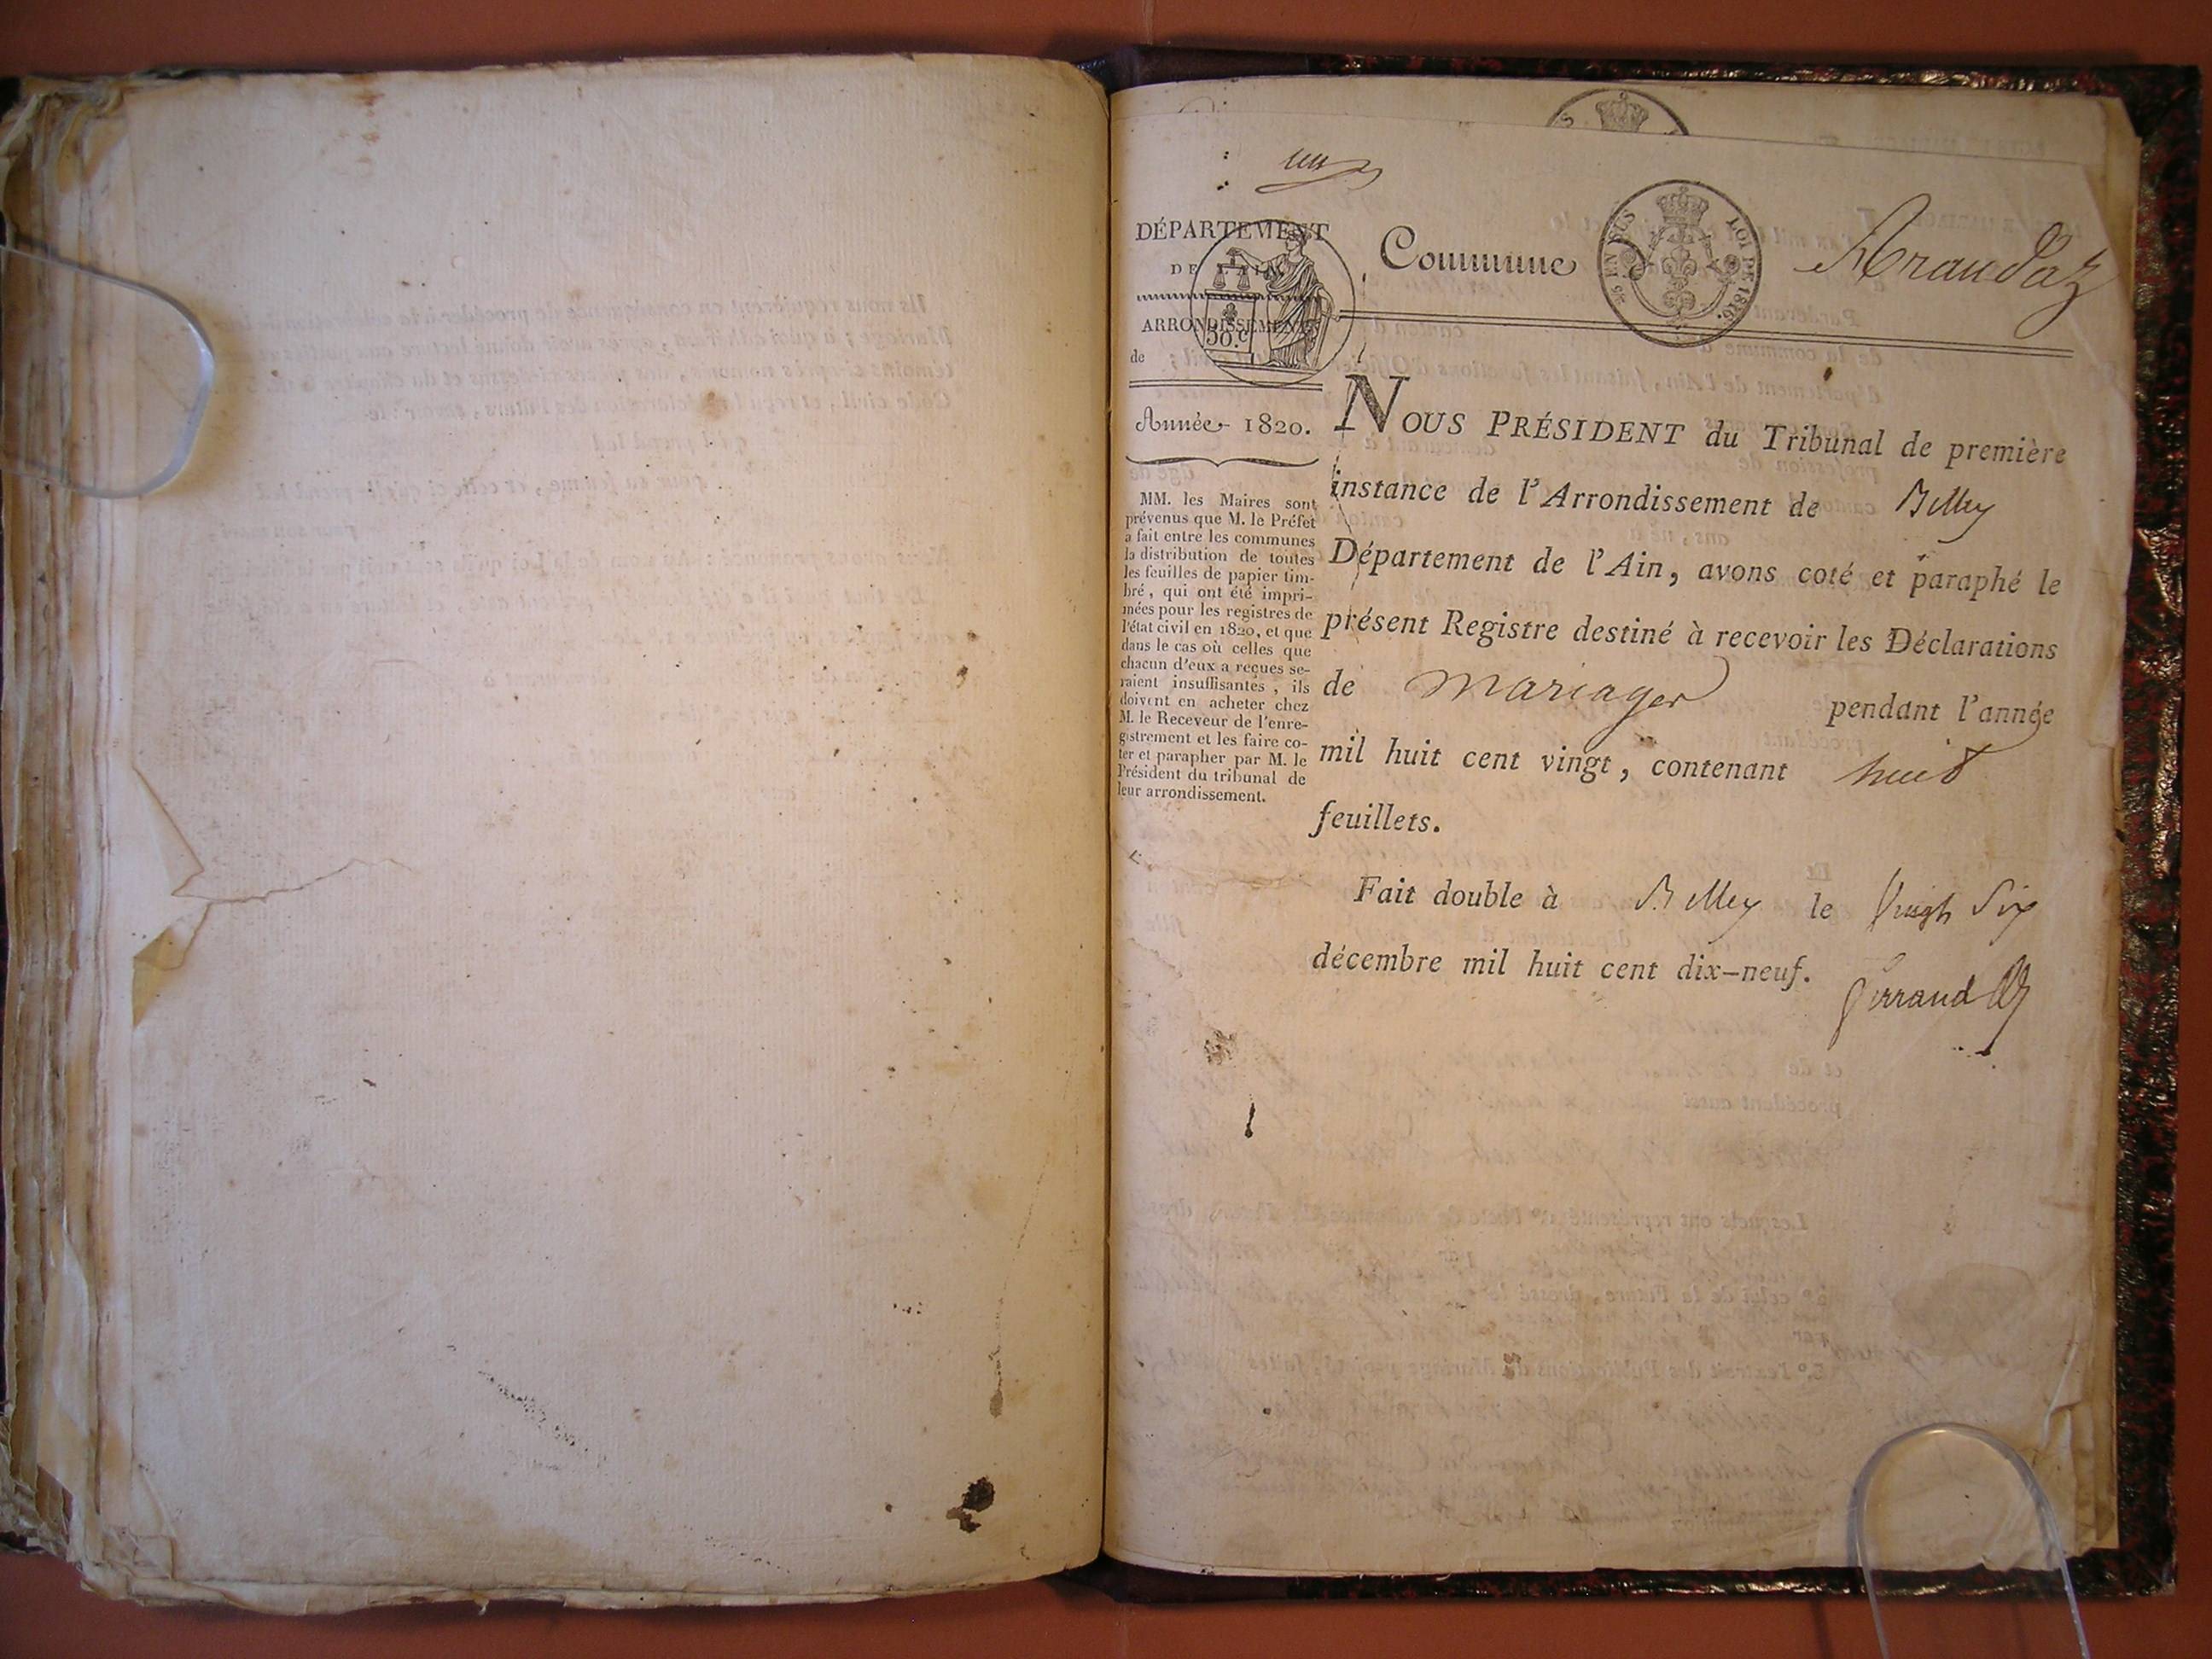 un
DÉPARTEMENT
DE L'AIN
ARRONDISSEMENT
de
30.c
Commune
EN SUS
LOI DE 1816.
Arandaz
Année 1820.
MM. les Maires sont
prévenus que M. le Préfet
a fait entre les communes
la distribution de toutes
les feuilles de papier tim-
bré, qui ont été impri-
mées pour les registres de
l'état civil en 1820, et que
dans le cas où celles que
chacun d'eux a reçues se-
raient insuffisantes, ils
doivent en acheter chez
M. le Receveur de l'enre-
gistrement et les faire co-
ter et parapher par M. le
Président du tribunal de
leur arrondissement.
NOUS PRÉSIDENT du Tribunal de première
instance de l'Arrondissement de Belley
Département de l'Ain, avons coté et paraphé le
présent Registre destiné à recevoir les Déclarations
de mariages pendant l'année
mil huit cent vingt, contenant huit
feuillets.
Fait double à Belley le vingt six
décembre mil huit cent dix-neuf.